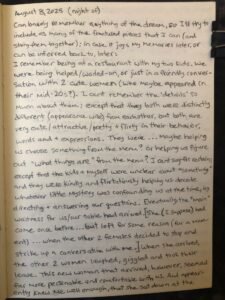 August 8, 2025 (night of)
Can barely remember anything of the dream, so I'll try to
include as many of the fractured pieces that I can (and
string them together), in case it jogs my memories later, or
can be inferred back to, later.
I remember being at a restaurant with my two kids. We
were being helped/waited-on, or just in a friendly conver-
sation with 2 cute women (who maybe appeared in
their mid-20s?). I can't remember the details so
much about them; except that they both were distinctly
different (appearance wise) from eachother, but both are
very cute/attractive/pretty + flirty in their behavior,
words and + expressions. They were... Maybe helping
us choose something from the menu? Or helping us figure
out "what things are" from the menu? I can't say for certain;
except that the kids + myself were unclear about "something"
and they were kindly and flirtatiously helping us decode
whatever little mystery was confounding us at the time, by
directing + answering our questions. Eventually the "main"
waitress for us/our table had arrived. [She (I suppose) had
come once before... but left for some reason (for a mom-
ent)... when the other 2 females decided to stop and
strike up a conversation with me.] When she arrived,
the other 2 women laughed, giggled and took their
leave. This new woman that arrived, however, seemed
far more personable and comfortable with us. And appar-
ently knew me well enough, that she sat down at the